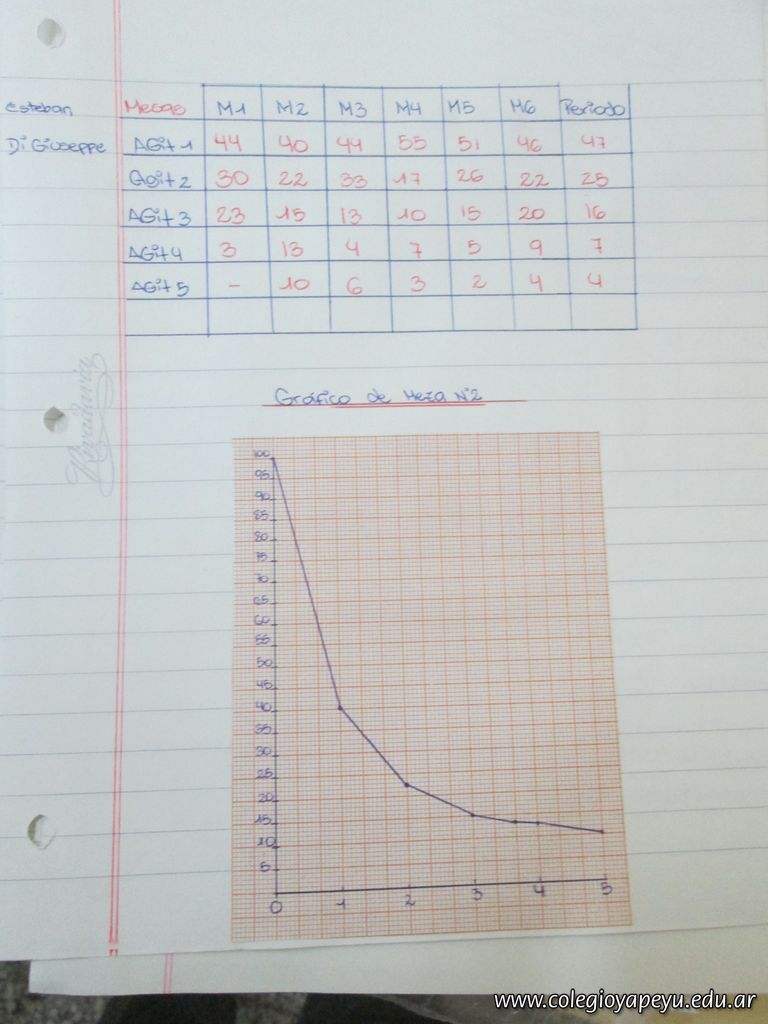 Esteban
Di Giuseppe
Mesas M1 M2 M3 M4 M5 M6 Periodo
AGit 1 44 40 44 55 51 46 47
AGit 2 30 22 33 17 26 22 25
AGit 3 23 15 13 10 15 20 16
AGit 4 3 13 4 7 5 9 7
AGit 5 - 10 6 3 2 4 4
Rivadavia
Gráfico de Meza N°2
100
95
90
85
80
75
70
65
60
55
50
45
40
35
30
25
20
15
10
5
0 1 2 3 4 5
www.colegioyapeyu.edu.ar